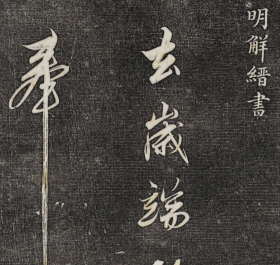 明解縉書
去歲端
奉